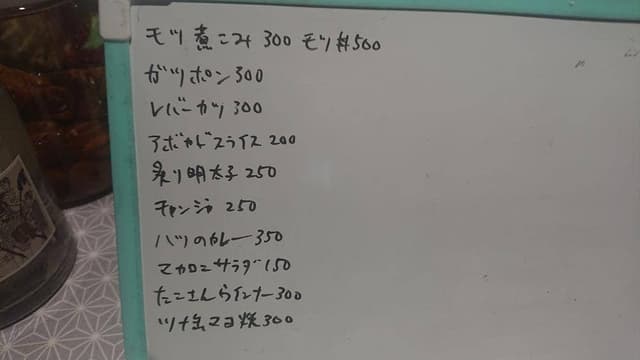 モツ煮こみ 300 モツ丼500
ガツポン 300
レバーカツ 300
アボカドスライス 200
炙り明太子 250
チャンジャ 250
ハツのカレー 350
マカロニサラダ 150
たこさんウインナー 300
ツナ缶マヨ焼300